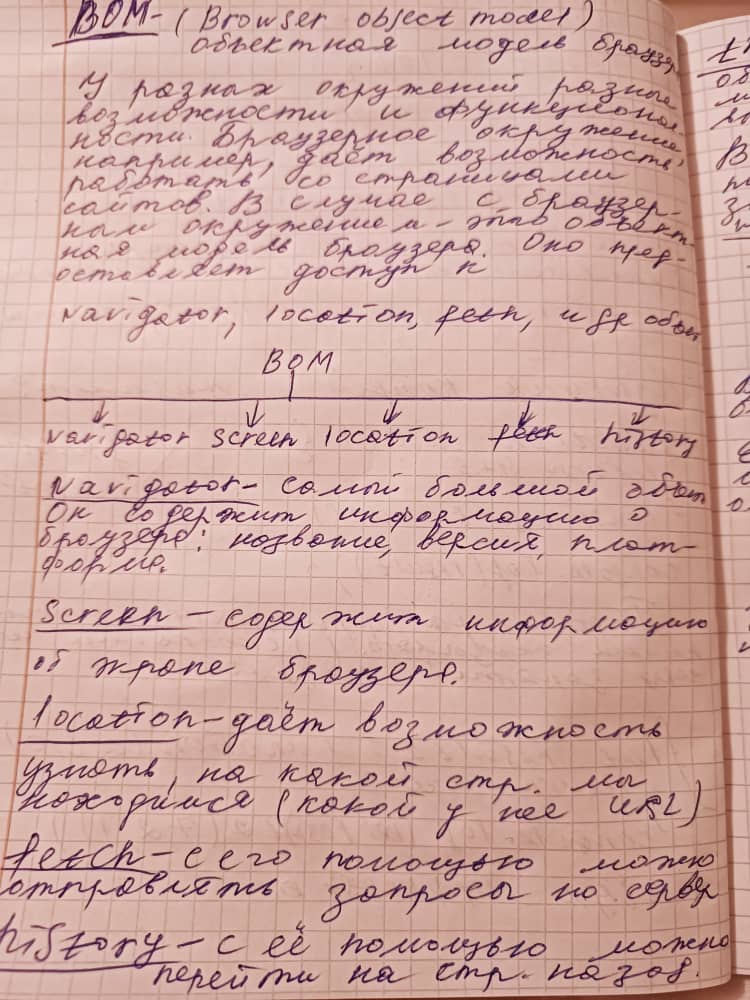 BOM - (Browser object model)
объектная модель браузер
У разных окружений разные
возможности и функционал-
ности. Браузерное окружение,
например, даёт возможность
работать со страницами
сайтов. В случае с браузер-
ным окружением - это объект-
ная модель браузера. Оно пред-
оставляет доступ к
navigator, location, fetch, и др объек
BOM
navigator screen location fetch history
Navigator - самый большой объек
Он содержит информацию о
браузере: название, версия, плат-
форма.
Screen - содержит информацию
об экране браузера.
location - даёт возможность
узнать, на какой стр. мы
находимся (какой у нее URL)
fetch - с его помощью можно
отправлять запросы на сервер
history - с её помощью можно
перейти на стр. назад.